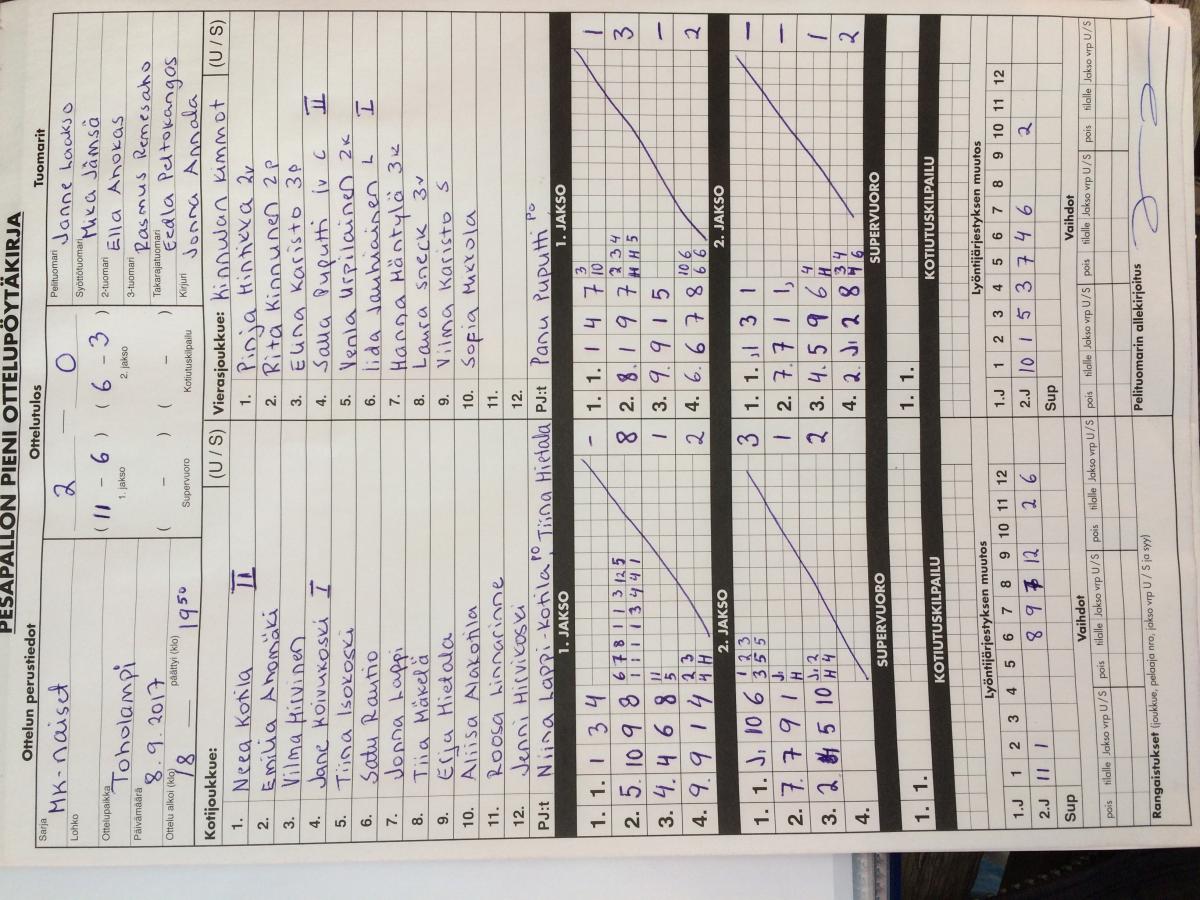 PESÄPALLON PIENI OTTELUPÖYTÄKIRJA
Ottelun perustiedot
Sarja
MK-naiset
Lohko
Ottelupaikka
Toholampi
Päivämäärä
8.9.2017
Ottelu alkoi (klo) 18 päättyi (klo) 19 50
Ottelutulos
2 — 0
( 11 - 6 ) ( 6 - 3 )
1. jakso 2. jakso
( - ) ( - )
Supervuoro Kotiutuskilpailu
Tuomarit
Pelituomari Janne Laakso
Syöttötuomari Mika Jämsä
2-tuomari Ella Ahokas
3-tuomari Rasmus Remesaho
Takarajatuomari Eedla Peltokangas
Kirjuri Jonna Annala
Kotijoukkue: (U / S)
1. Neea Kotila II
2. Emilia Ahomäki
3. Vilma Hirvinen
4. Jane Koivukoski I
5. Tiina Isokoski
6. Satu Rautio
7. Jonna Lappi
8. Tiia Mäkelä
9. Erja Hietala
10. Aliisa Alakotila
11. Roosa Linnarinne
12. Jenni Hirvikoski
PJ:t Niina Lappi-Kotila PO, Tiina Hietala
Vierasjoukkue: Kinnulan Kimmot (U / S)
1. Pinja Hintikka 2v
2. Rita Kinnunen 2p
3. Elina Karisto 3p
4. Salla Puputti 1v C II
5. Venla Urpilainen 2k
6. Iida Jauhiainen L I
7. Hanna Mäntylä 3k
8. Laura Snerck 3v
9. Vilma Karisto S
10. Sofia Mikkola
11.
12.
PJ:t Panu Puputti PO
1. JAKSO
1. 1. 1 3 4 -
2. 5. 10 9 8 8
3. 4. 4 6 8 1
4. 9. 9 1 4 2
2. JAKSO
1. 1. J1 10 6 3
2. 7. 7 9 1 1
3. 2 5 10 2
4.
SUPERVUORO
1. 1.
KOTIUTUSKILPAILU
1. JAKSO
1. 1. 1 4 7 1
2. 8. 1 9 7 3
3. 9. 9 1 5 –
4. 6. 6 7 8 2
2. JAKSO
1. 1. J1 3 1 –
2. 7. 7 1 1, –
3. 4. 5 9 6 1
4. 2. J1 2 8 2
SUPERVUORO
1. 1.
KOTIUTUSKILPAILU
Lyöntijärjestyksen muutos
1.J 1 2 3 4 5 6 7 8 9 10 11 12
2.J 11 1 8 9 7 12 2 6
Sup
Vaihdot
pois tilalle Jakso vrp U / S pois tilalle Jakso vrp U / S pois tilalle Jakso vrp U / S
Lyöntijärjestyksen muutos
1.J 1 2 3 4 5 6 7 8 9 10 11 12
2.J 10 1 5 3 7 4 6 2
Sup
Vaihdot
pois tilalle Jakso vrp U / S pois tilalle Jakso vrp U / S pois tilalle Jakso vrp U / S
Rangaistukset (joukkue, pelaaja nro, jakso vrp U / S ja syy)
Pelituomarin allekirjoitus